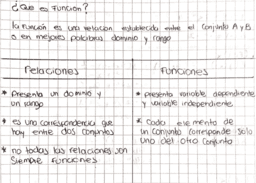 ¿Que es Función?
la función es una relacion establecida entre el Conjunto A y B
o en mejores palabras dominio y rango
relaciones
Funciones
* Presenta un dominio y
un rango
* es una correspondencia que
hay entre dos conjuntos
* no todas las relaciones son
Siempre funciones
* presenta variable dependiente
y variable independiente
* Cada elemento de
un Conjunto corresponde solo
uno del otro Conjunto